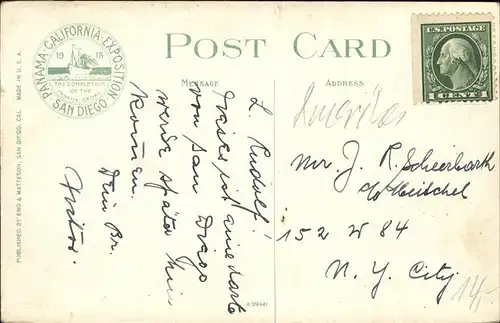 PANAMA-CALIFORNIA-EXPOSITION
1915
THE COMPLETION
OF THE
PANAMA CANAL
SAN DIEGO
POST CARD
MESSAGE
ADDRESS
U.S.POSTAGE
1 CENT 1
PUBLISHED BY ENO & MATTESON, SAN DIEGO, CAL. MADE IN U.S.A.
L. Rudolf!
Dieses ist eine Karte
von San Diego
werde später hin
kommen.
Dein Br.
Amerika
Mr. J. R. Scheerbarth
c/o
152 W 84
N. Y. City.
14,-
A-29441